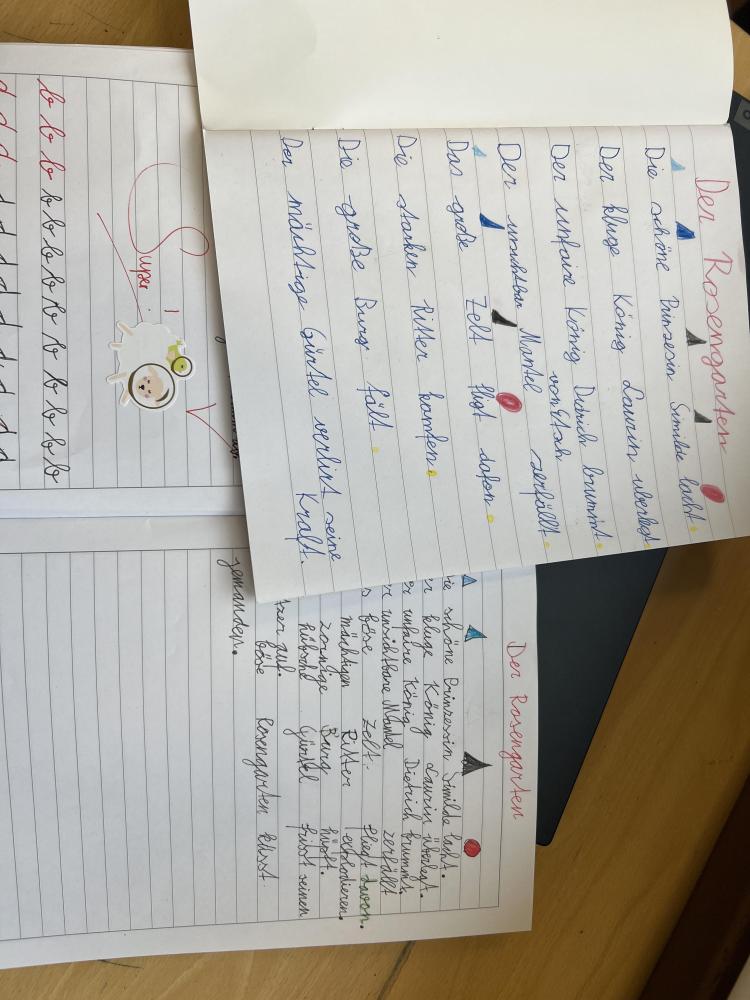 Der Rosengarten
Die schöne Prinzesin Similde lacht.
Der kluge König Laurin uberlegt.
Der unfaire König Dietrich brummt.
von Etsh
Der unsichtbar Mantel zerfällt.
Das große Zelt fligt dafon.
Die starken Ritter kämfen.
Die große Burg fält.
Der mächtige Gürtel verlirt seine
Kraft.
Super!
b b b b b b b b b b b b b
d d d d d d d d d d
Der Rosengarten
ie schöne Prinzessin Similde lacht.
r kluge König Laurin überlegt.
er unfaire König Dietrich brummt.
r unsichtbare Mantel zerfällt
s böse Zelt fliegt davon.
mächtigen Ritter explodieren.
zornige Burg hüpft.
hübsche Gürtel frisst seinen
tzer auf.
böse Rosengarten küsst
jemanden.